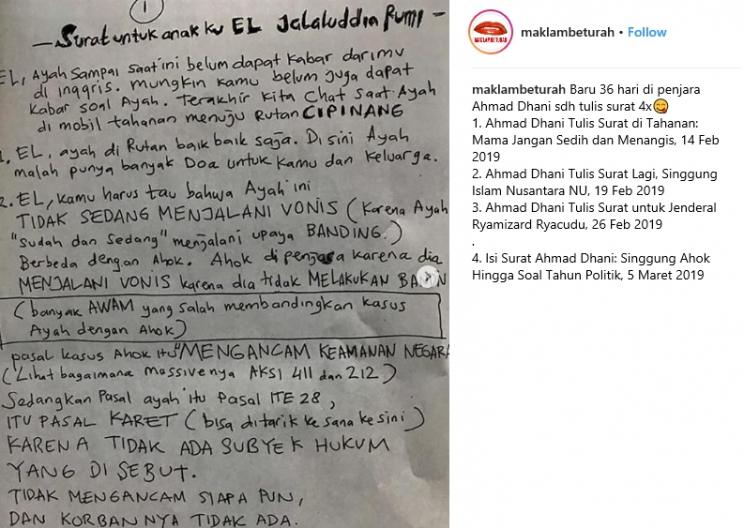 1
- Surat untuk anak ku EL Jalaluddin Rumi -
EL, Ayah Sampai saat ini belum dapat kabar darimu
di inggris. mungkin kamu belum juga dapat
kabar soal Ayah. Terakhir kita chat saat Ayah
di mobil tahanan menuju Rutan CIPINANG
1. EL, ayah di Rutan baik baik saja. Di sini Ayah
malah punya banyak Doa untuk kamu dan keluarga.
2. EL, kamu harus tau bahwa Ayah ini
TIDAK SEDANG MENJALANI VONIS (karena Ayah
"sudah dan sedang" menjalani upaya BANDING.)
Berbeda dengan Ahok. Ahok di penjara karena dia
MENJALANI VONIS karena dia tidak MELAKUKAN
(banyak AWAM yang salah membandingkan kasus
Ayah dengan Ahok)
pasal kasus Ahok itu "MENGANCAM KEAMANAN NEGARA
(Lihat bagaimana massivenya AKSI 411 dan 212)
Sedangkan Pasal ayah itu Pasal ITE 28,
ITU PASAL KARET (bisa ditarik ke sana ke sini)
KARENA TIDAK ADA SUBYEK HUKUM
YANG DI SEBUT.
TIDAK MENGANCAM SIAPA PUN,
DAN KORBANNYA TIDAK ADA.
MAKLAMBETURAH
maklambeturah • Follow
maklambeturah Baru 36 hari di penjara
Ahmad Dhani sdh tulis surat 4x😋
1. Ahmad Dhani Tulis Surat di Tahanan:
Mama Jangan Sedih dan Menangis, 14 Feb
2019
2. Ahmad Dhani Tulis Surat Lagi, Singgung
Islam Nusantara NU, 19 Feb 2019
3. Ahmad Dhani Tulis Surat untuk Jenderal
Ryamizard Ryacudu, 26 Feb 2019
.
4. Isi Surat Ahmad Dhani: Singgung Ahok
Hingga Soal Tahun Politik, 5 Maret 2019